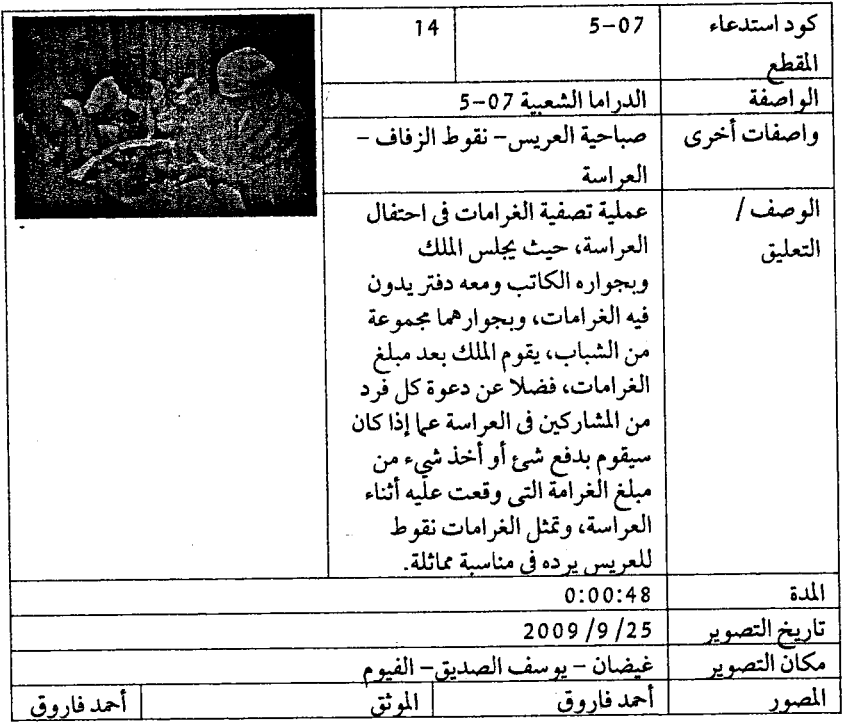 كود استدعاء 5-07 14
المقطع
الواصفة الدراما الشعبية 07-5
واصفات أخرى صباحية العريس- نقوط الزفاف -
العراسة
الوصف / عملية تصفية الغرامات فى احتفال
التعليق العراسة، حيث يجلس الملك
وبجواره الكاتب ومعه دفتر يدون
فيه الغرامات، وبجوارهما مجموعة
من الشباب، يقوم الملك بعد مبلغ
الغرامات، فضلا عن دعوة كل فرد
من المشاركين فى العراسة عما إذا كان
سيقوم بدفع شئ أو أخذ شيء من
مبلغ الغرامة التى وقعت عليه أثناء
العراسة، وتمثل الغرامات نقوط
للعريس يرده فى مناسبة مماثلة.
المدة 0:00:48
تاريخ التصوير 2009/9/25
مكان التصوير غيضان - يوسف الصديق- الفيوم
المصور أحمد فاروق الموثق أحمد فاروق